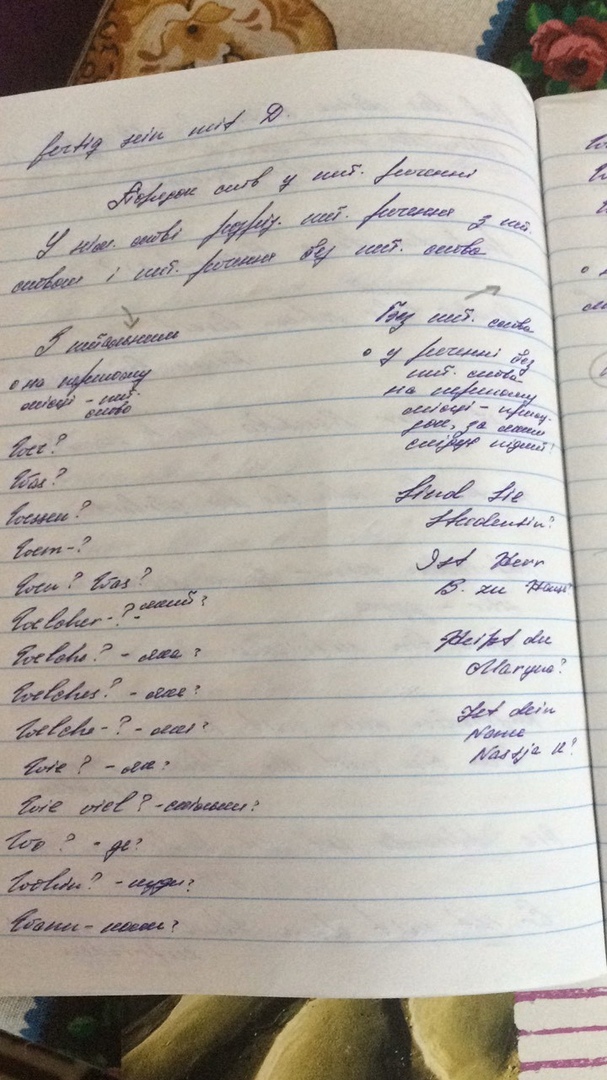 fertig sein mit D.
Порядок слів у пит. реченні
У нім. мові розрізн. пит. речення з пит.
словом і пит. речення без пит. слова
З питальним
о на першому
місці - пит.
слово
Wer?
Was?
Wessen?
Wem-?
Wen? Was?
Welcher-? - який?
Welche? - яка?
Welches? - яке?
Welche-? - які?
Wie? - як?
Wie viel? - скільки?
Wo? - де?
Wohin? - куди?
Wann - коли?
Без пит. слова
о у реченні без
пит. слова
на першому
місці - прису-
док, за яким
слідує підмет!
Sind Sie
Studentin?
Ist Herr
B. zu Haus?
Heißt du
Maryna?
Ist dein
Name
Nastja K?